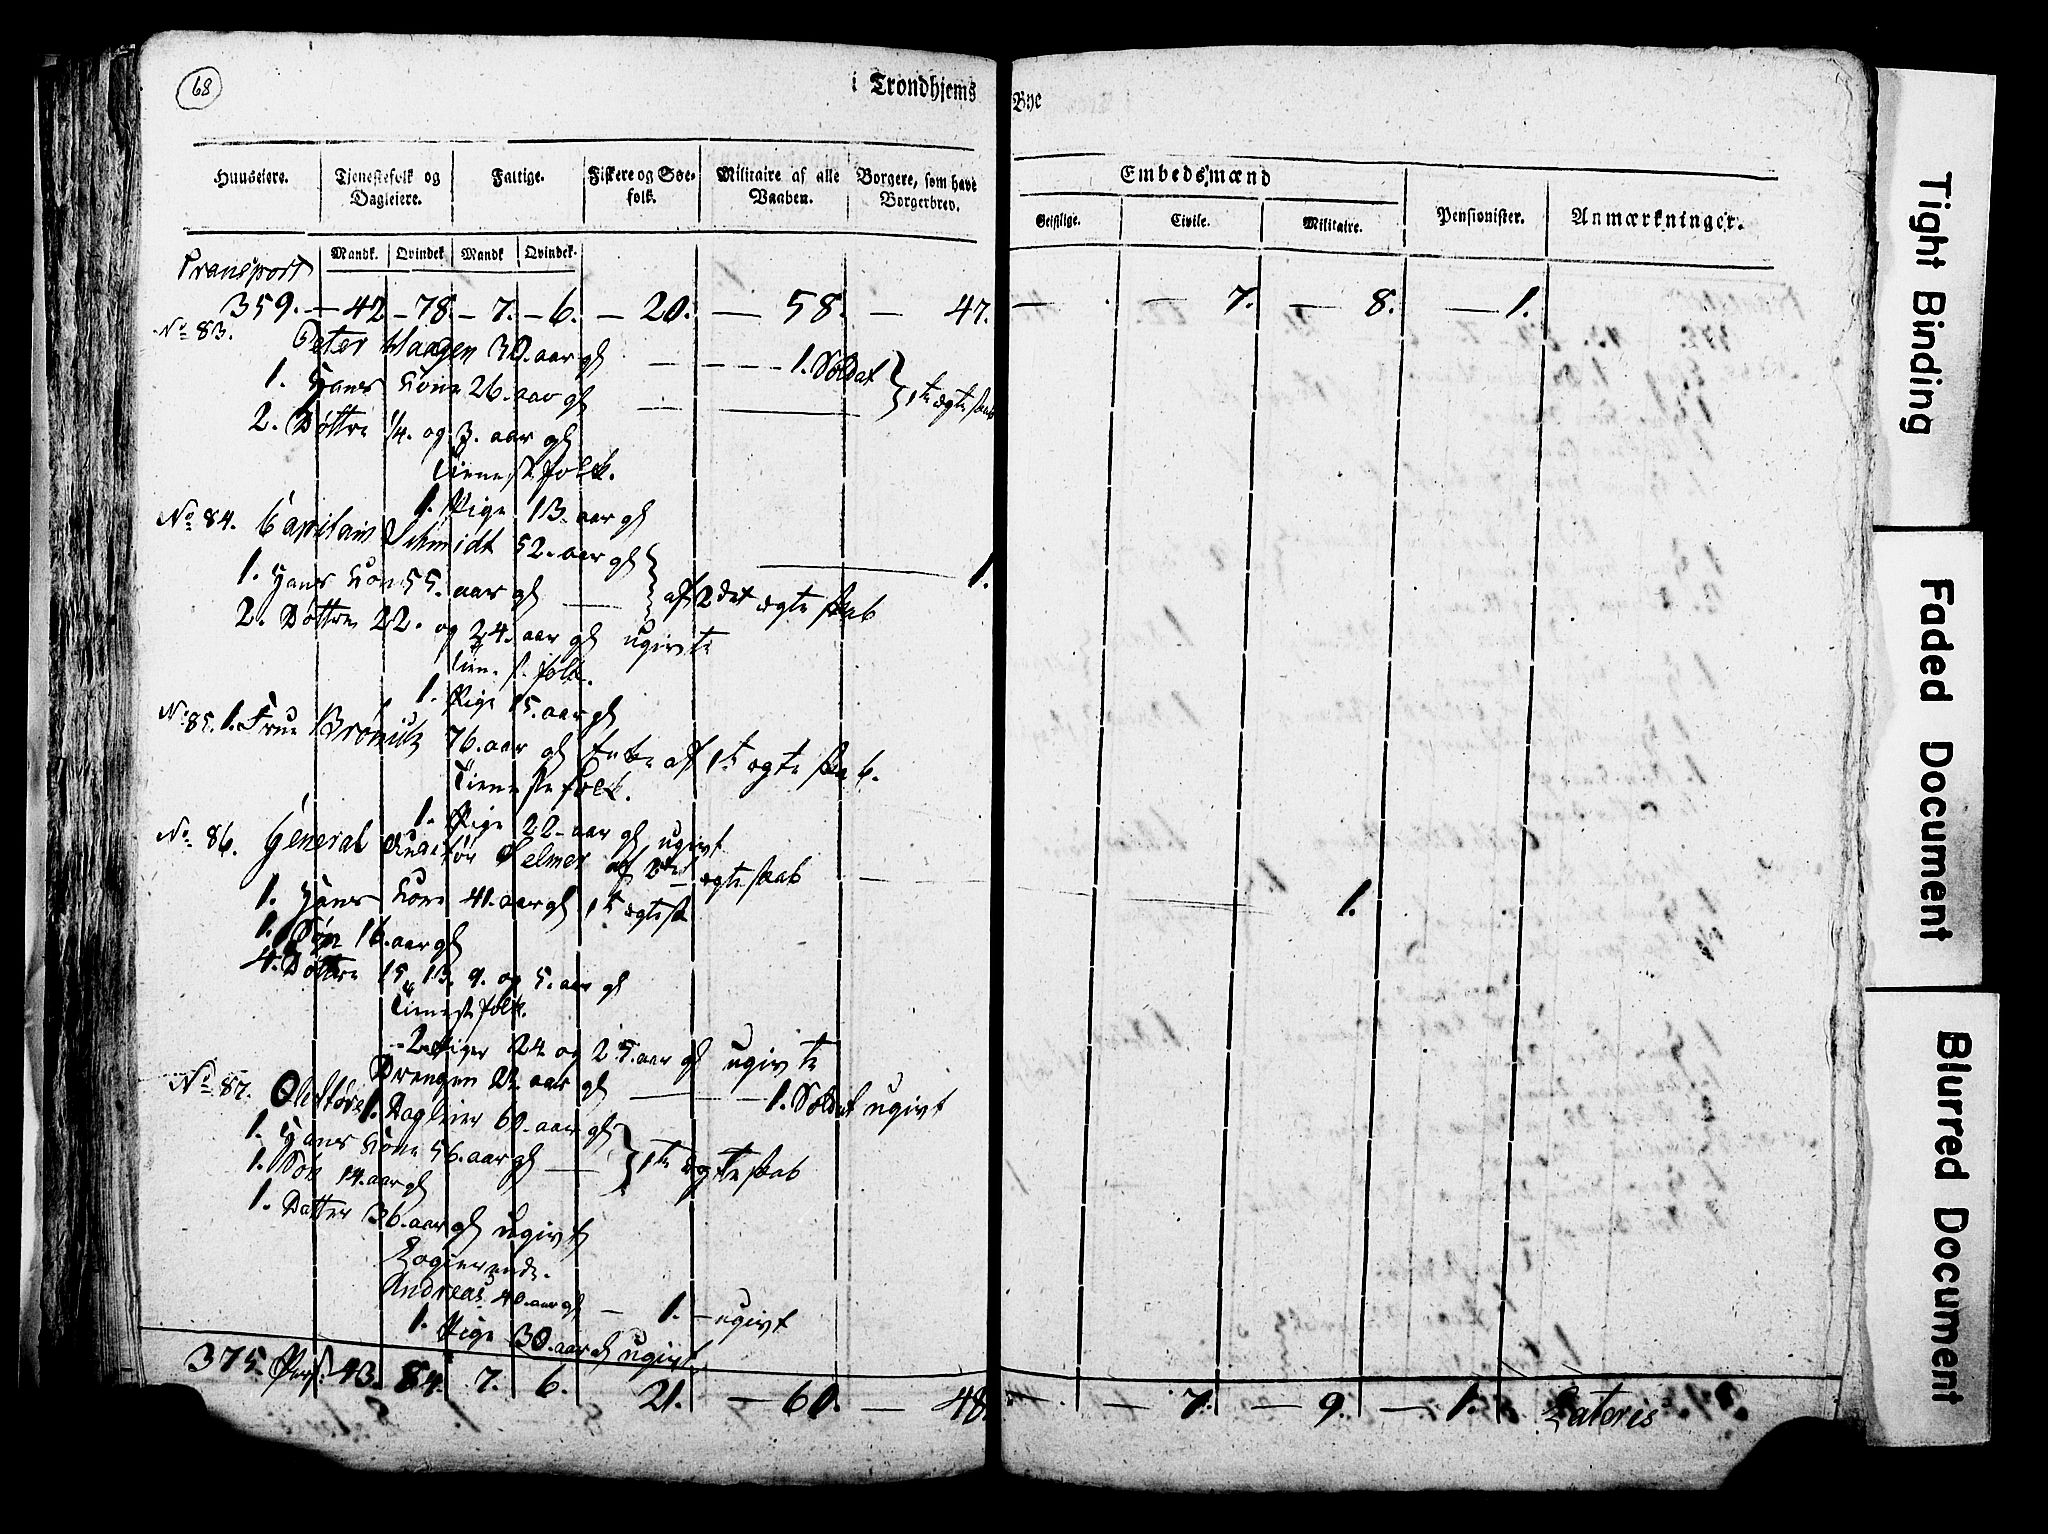 68
i Trondhjems Bye
Huuseiere. Tjenestefolk og Dagleiere. Fattige. Fiskere og Søefolk. Militaire af alle Vaaben. Borgere, som have Borgerbrev. Embedsmænd Pensionister. Anmærkninger.
Geistlige. Civile. Militaire.
Mandk. Qvindek Mandk Qvindek.
Transport
359. — 42 — 78. — 7. — 6. — 20. — 58. — 47. — — 7. — 8. — 1.
No 83. Peter Haagen 30. aar gl — — — 1. Soldat
1. Hans Kone 26. aar gl — — 1te ægteskab
2. Døttre 1/4. og 3. aar gl
Tienestefolk.
1. Pige 13. aar gl
No 84. Capitain Schmidt 52. aar gl — 1.
1. Hans Kone 55. aar gl — af 2det ægteskab
2. Døttre 22. og 24. aar gl ugivte
Tienestfolk.
1. Pige 15. aar gl
No 85. 1. Frue 76. aar gl Enke af 1te egteskab.
Tienestefolk.
1. Pige 22. aar gl ugivt
No 86. General Selmer af egteskab — 1.
1. Hans Kone 41. aar gl 1te ægtesk
1. Søn 16. aar gl
4. Døttre 15, 13. 9. og 5. aar gl
Tienestefolk.
2. Piger 24 og 25. aar gl ugivte
Drengen 22. aar gl — — 1. Soldat ugivt
No 87. 1. Dagleier 60. aar gl
1. Hans Kone 56. aar gl — 1te ægteskab
1. Søn 14. aar gl
1. Datter 36. aar gl ugivt
Logierende.
Andreas 40. aar gl — 1. — ugivt
1. Pige 30. aar gl ugivt
375. Pers. 43. 84. 7. 6. 21. — 60. — 48. — — 7. — 9. — 1. Lateris
Tight Binding
Faded Document
Blurred Document